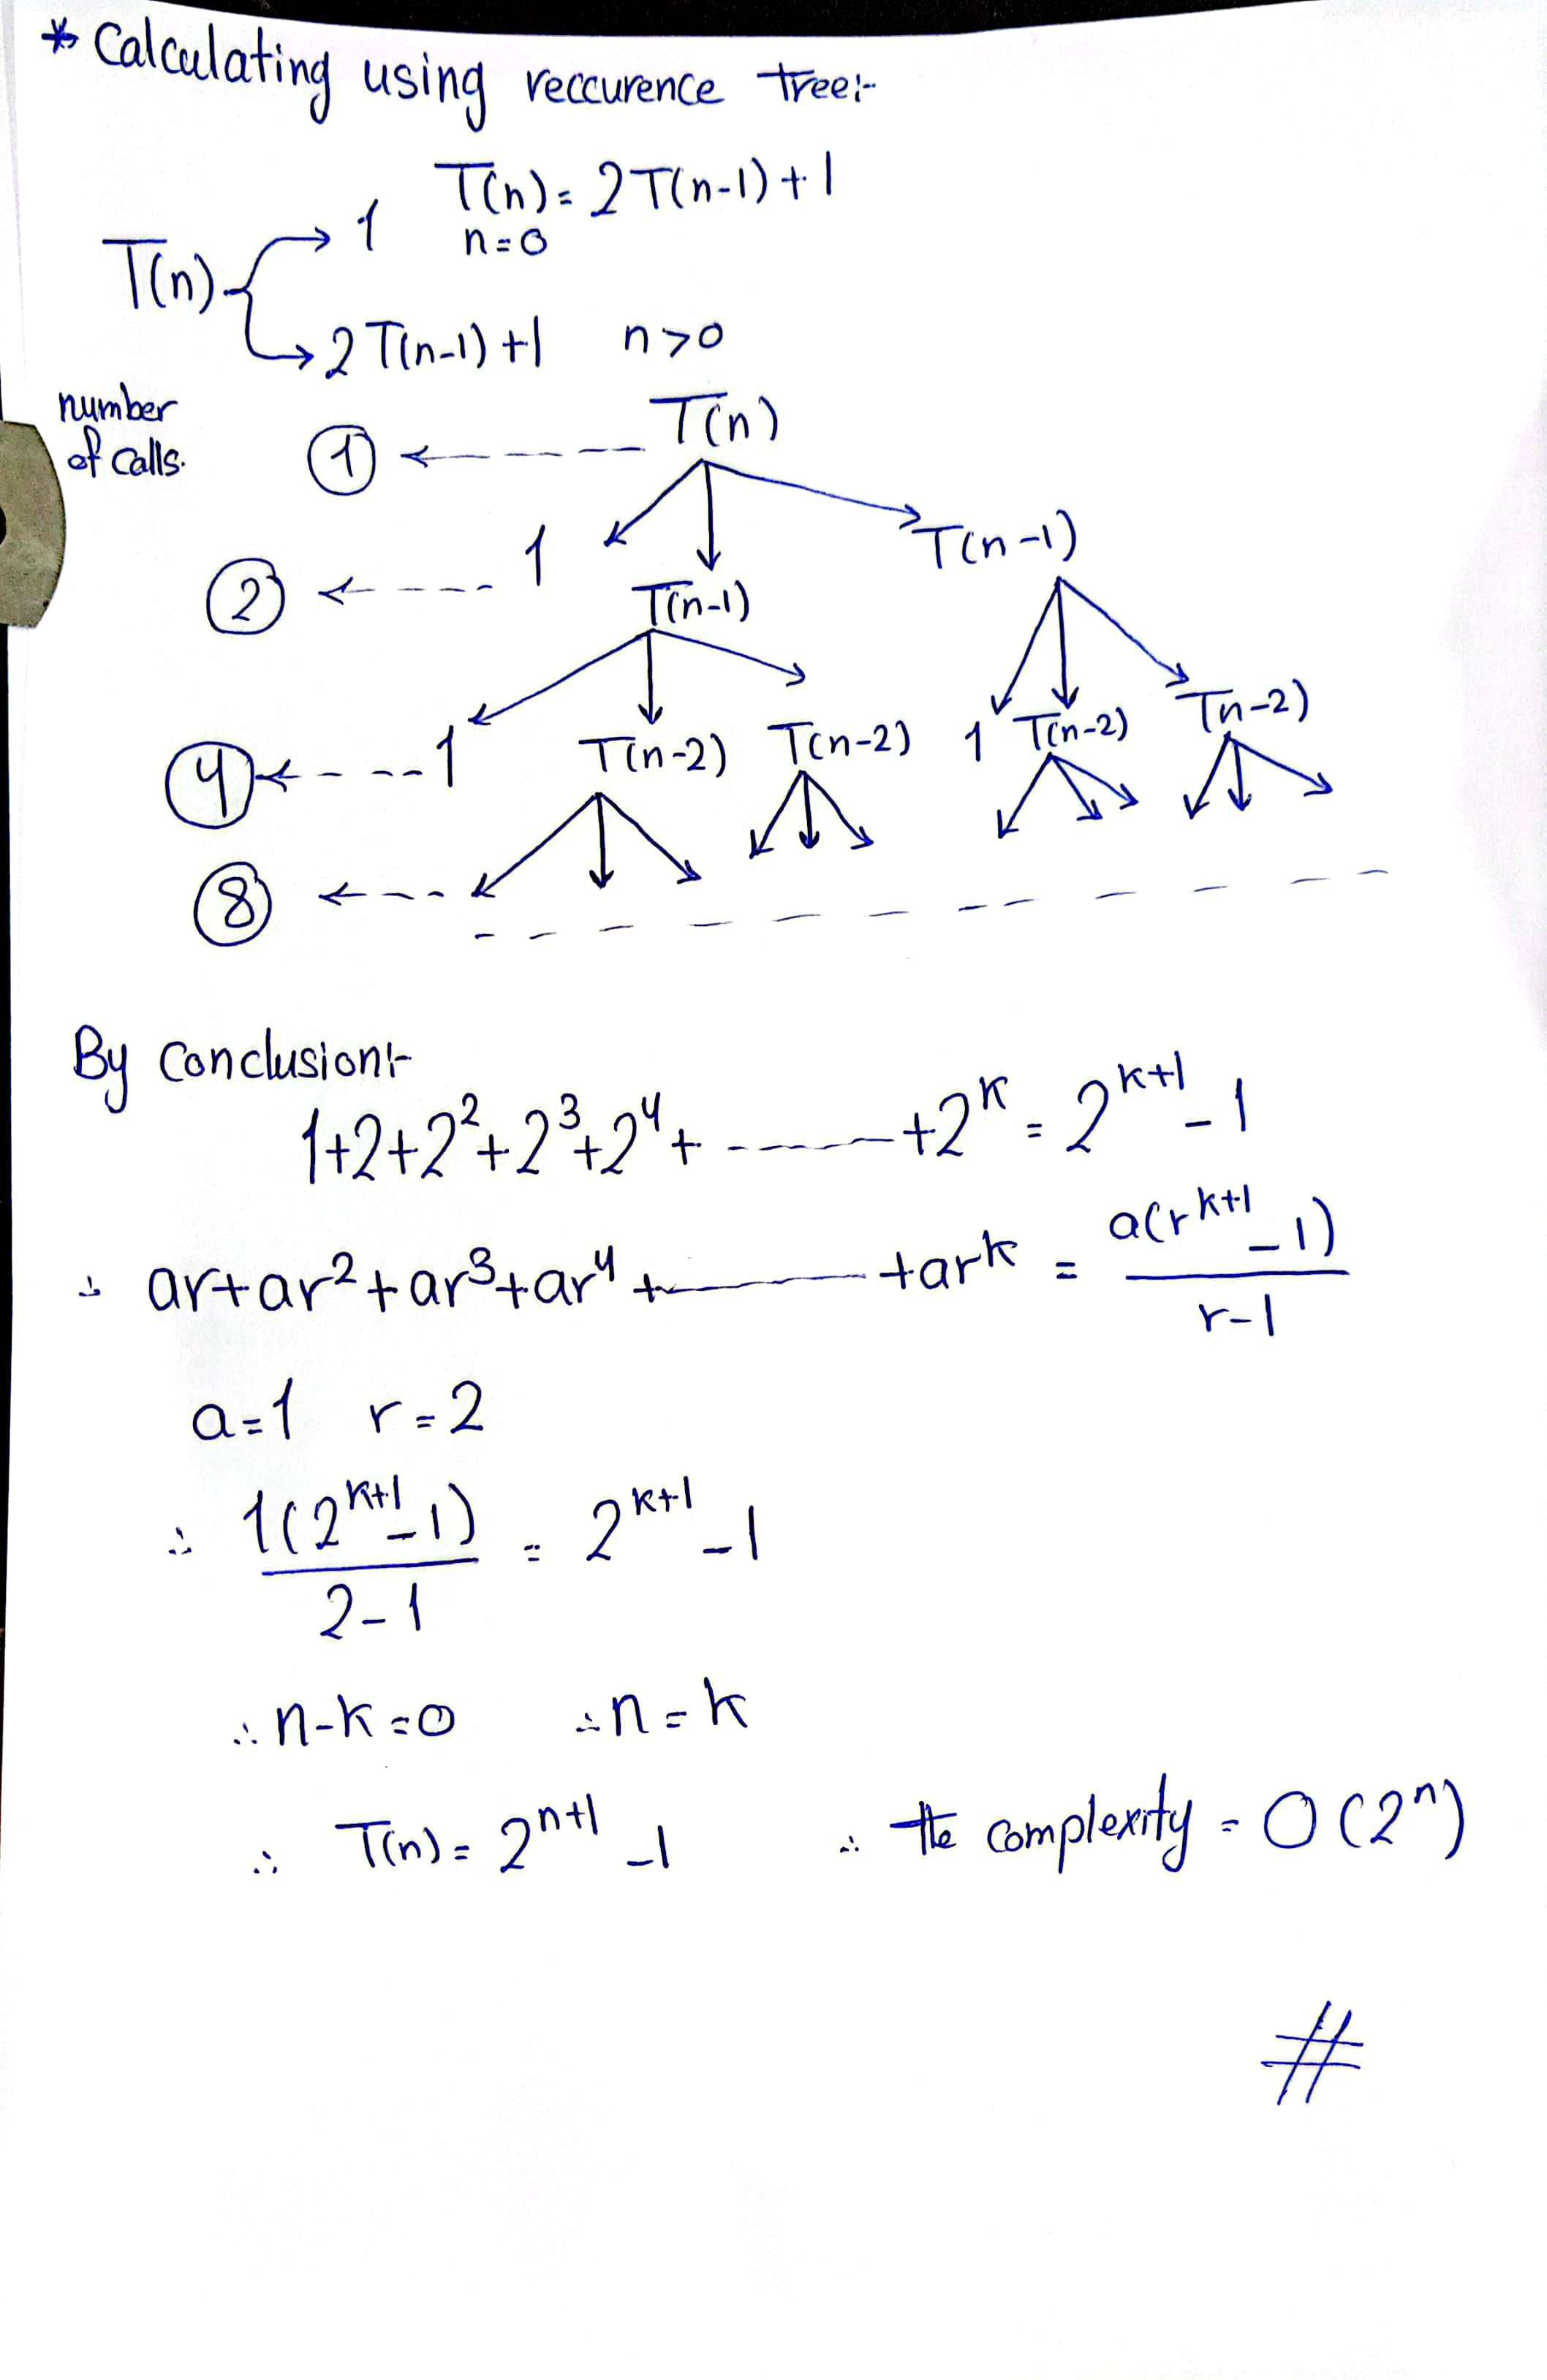 * Calculating using reccurence tree:-
T(n) = 2T(n-1) + 1
T(n) 1 n = 0
2T(n-1) + 1 n > 0
number
of calls.
1 T(n)
2 1 T(n-1) T(n-1)
4 1 T(n-2) T(n-2) 1 T(n-2) T(n-2)
8
By Conclusion:-
1+2+2²+2³+2⁴+ ------ +2^k = 2^(k+1) - 1
∴ ar+ar²+ar³+ar⁴+ ------ +ar^k = a(r^(k+1) - 1) / (r-1)
a=1 r=2
∴ 1(2^(k+1) - 1) / (2-1) = 2^(k+1) - 1
∴ n-k=0 ∴ n=k
∴ T(n) = 2^(n+1) - 1 ∴ the complexity = O(2^n)
#